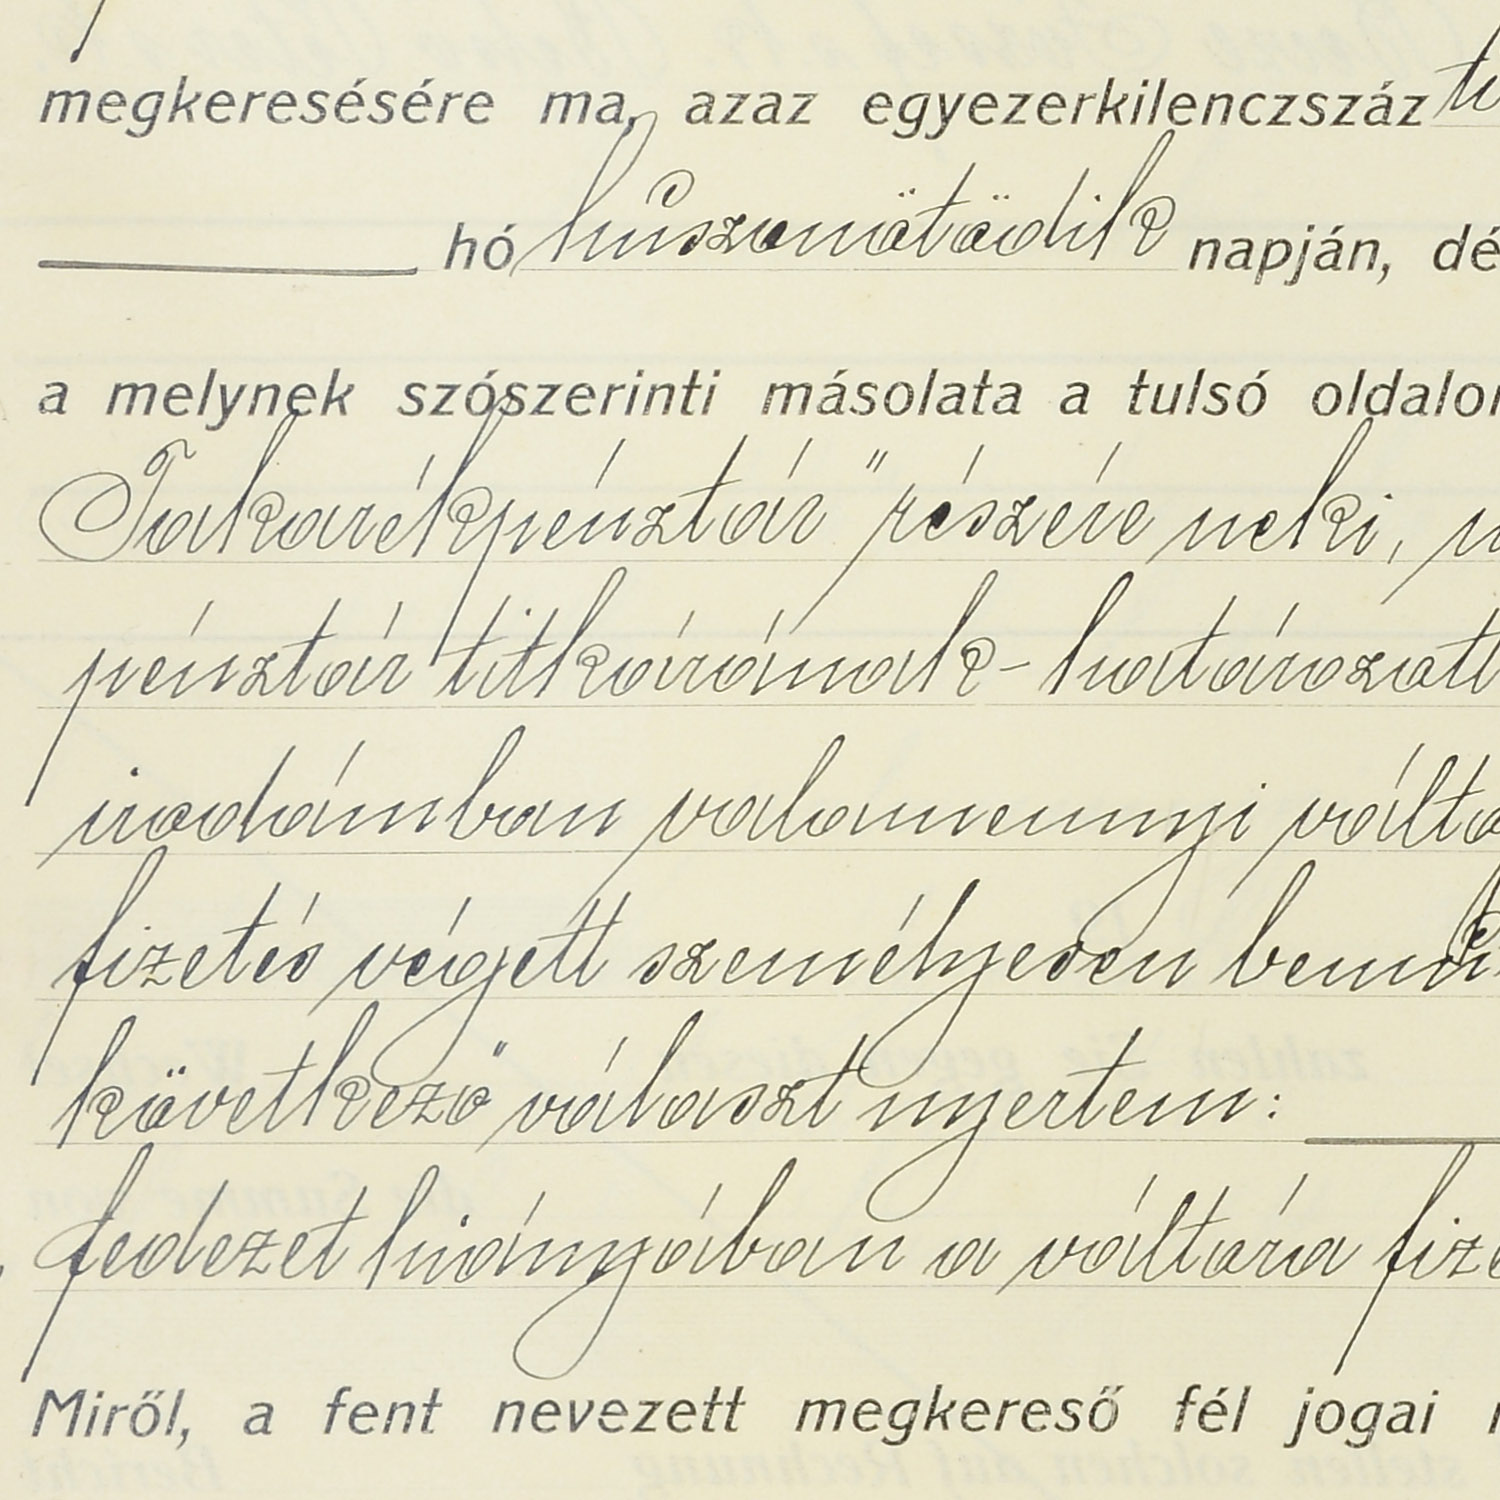 megkeresésére ma, azaz egyezerkilenczszáz
hó huszonötödik napján, dé
a melynek szószerinti másolata a tulsó oldalon
Takarékpénztár" részére neki,
pénztár titkárának - határozatt
irodámban valamennyi válto
fizetés végett személyesen bemu
következő választ nyertem:
fedezet hiányában a váltóra fize
Miről, a fent nevezett megkereső fél jogai